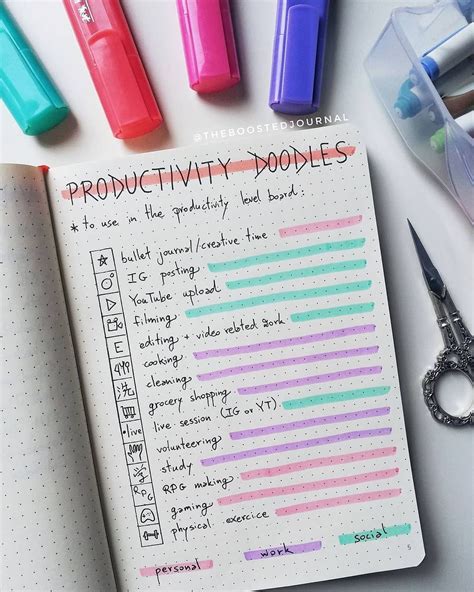 @THEBOOSTEDJOURNAL
PRODUCTIVITY DOODLES
* to use in the productivity level board:
bullet journal/creative time
IG posting
YouTube upload
filming
E editing + video related work
cooking
洗 cleaning
grocery shopping
•live live session (IG or YT)
volunteering
study
RPG RPG making
gaming
physical exercice
personal work social
5